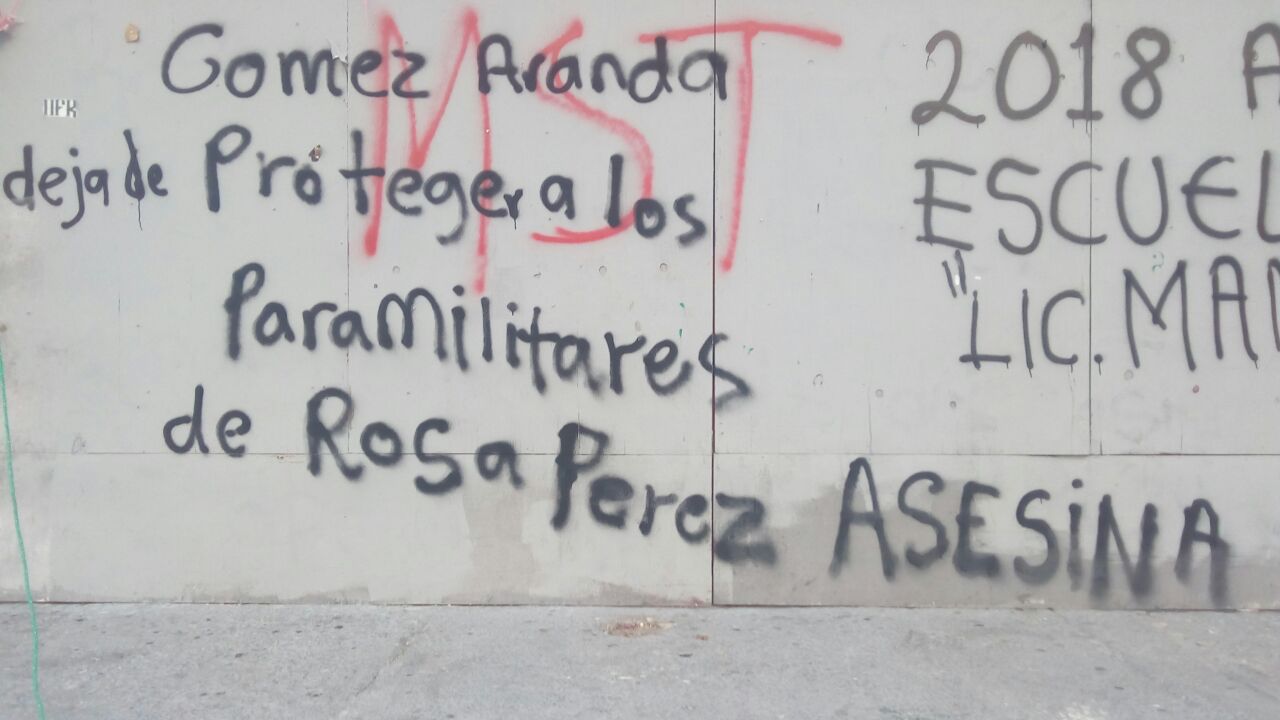 Gomez Aranda
deja de Proteger a los
Paramilitares
de Rosa Perez ASESINA
MST
2018 A
ESCUEL
"LIC. MAN